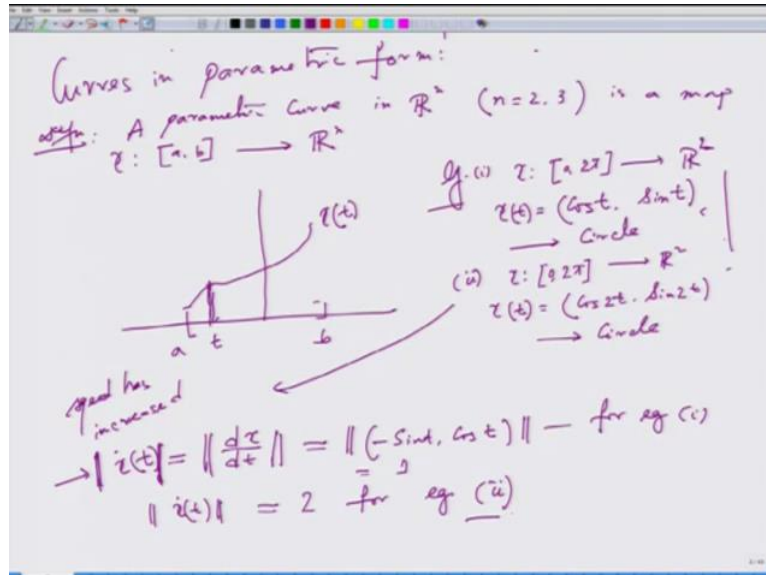 Curves in parametric form:
defn: A parametric curve in ℝⁿ (n=2,3) is a map
γ: [a,b] ⟶ ℝⁿ
γ(t)
a
t
b
Eg. (i) γ: [0,2π] ⟶ ℝ²
γ(t) = (Cos t, Sin t),
⟶ Circle
(ii) γ: [0,2π] ⟶ ℝ²
γ(t) = (Cos 2t, Sin 2t)
⟶ Circle
speed has
increased
→ ‖γ̇(t)‖ = ‖dγ/dt‖ = ‖(-Sin t, Cos t)‖ — for eg (i)
= 1
‖γ̇(t)‖ = 2 for eg (ii)